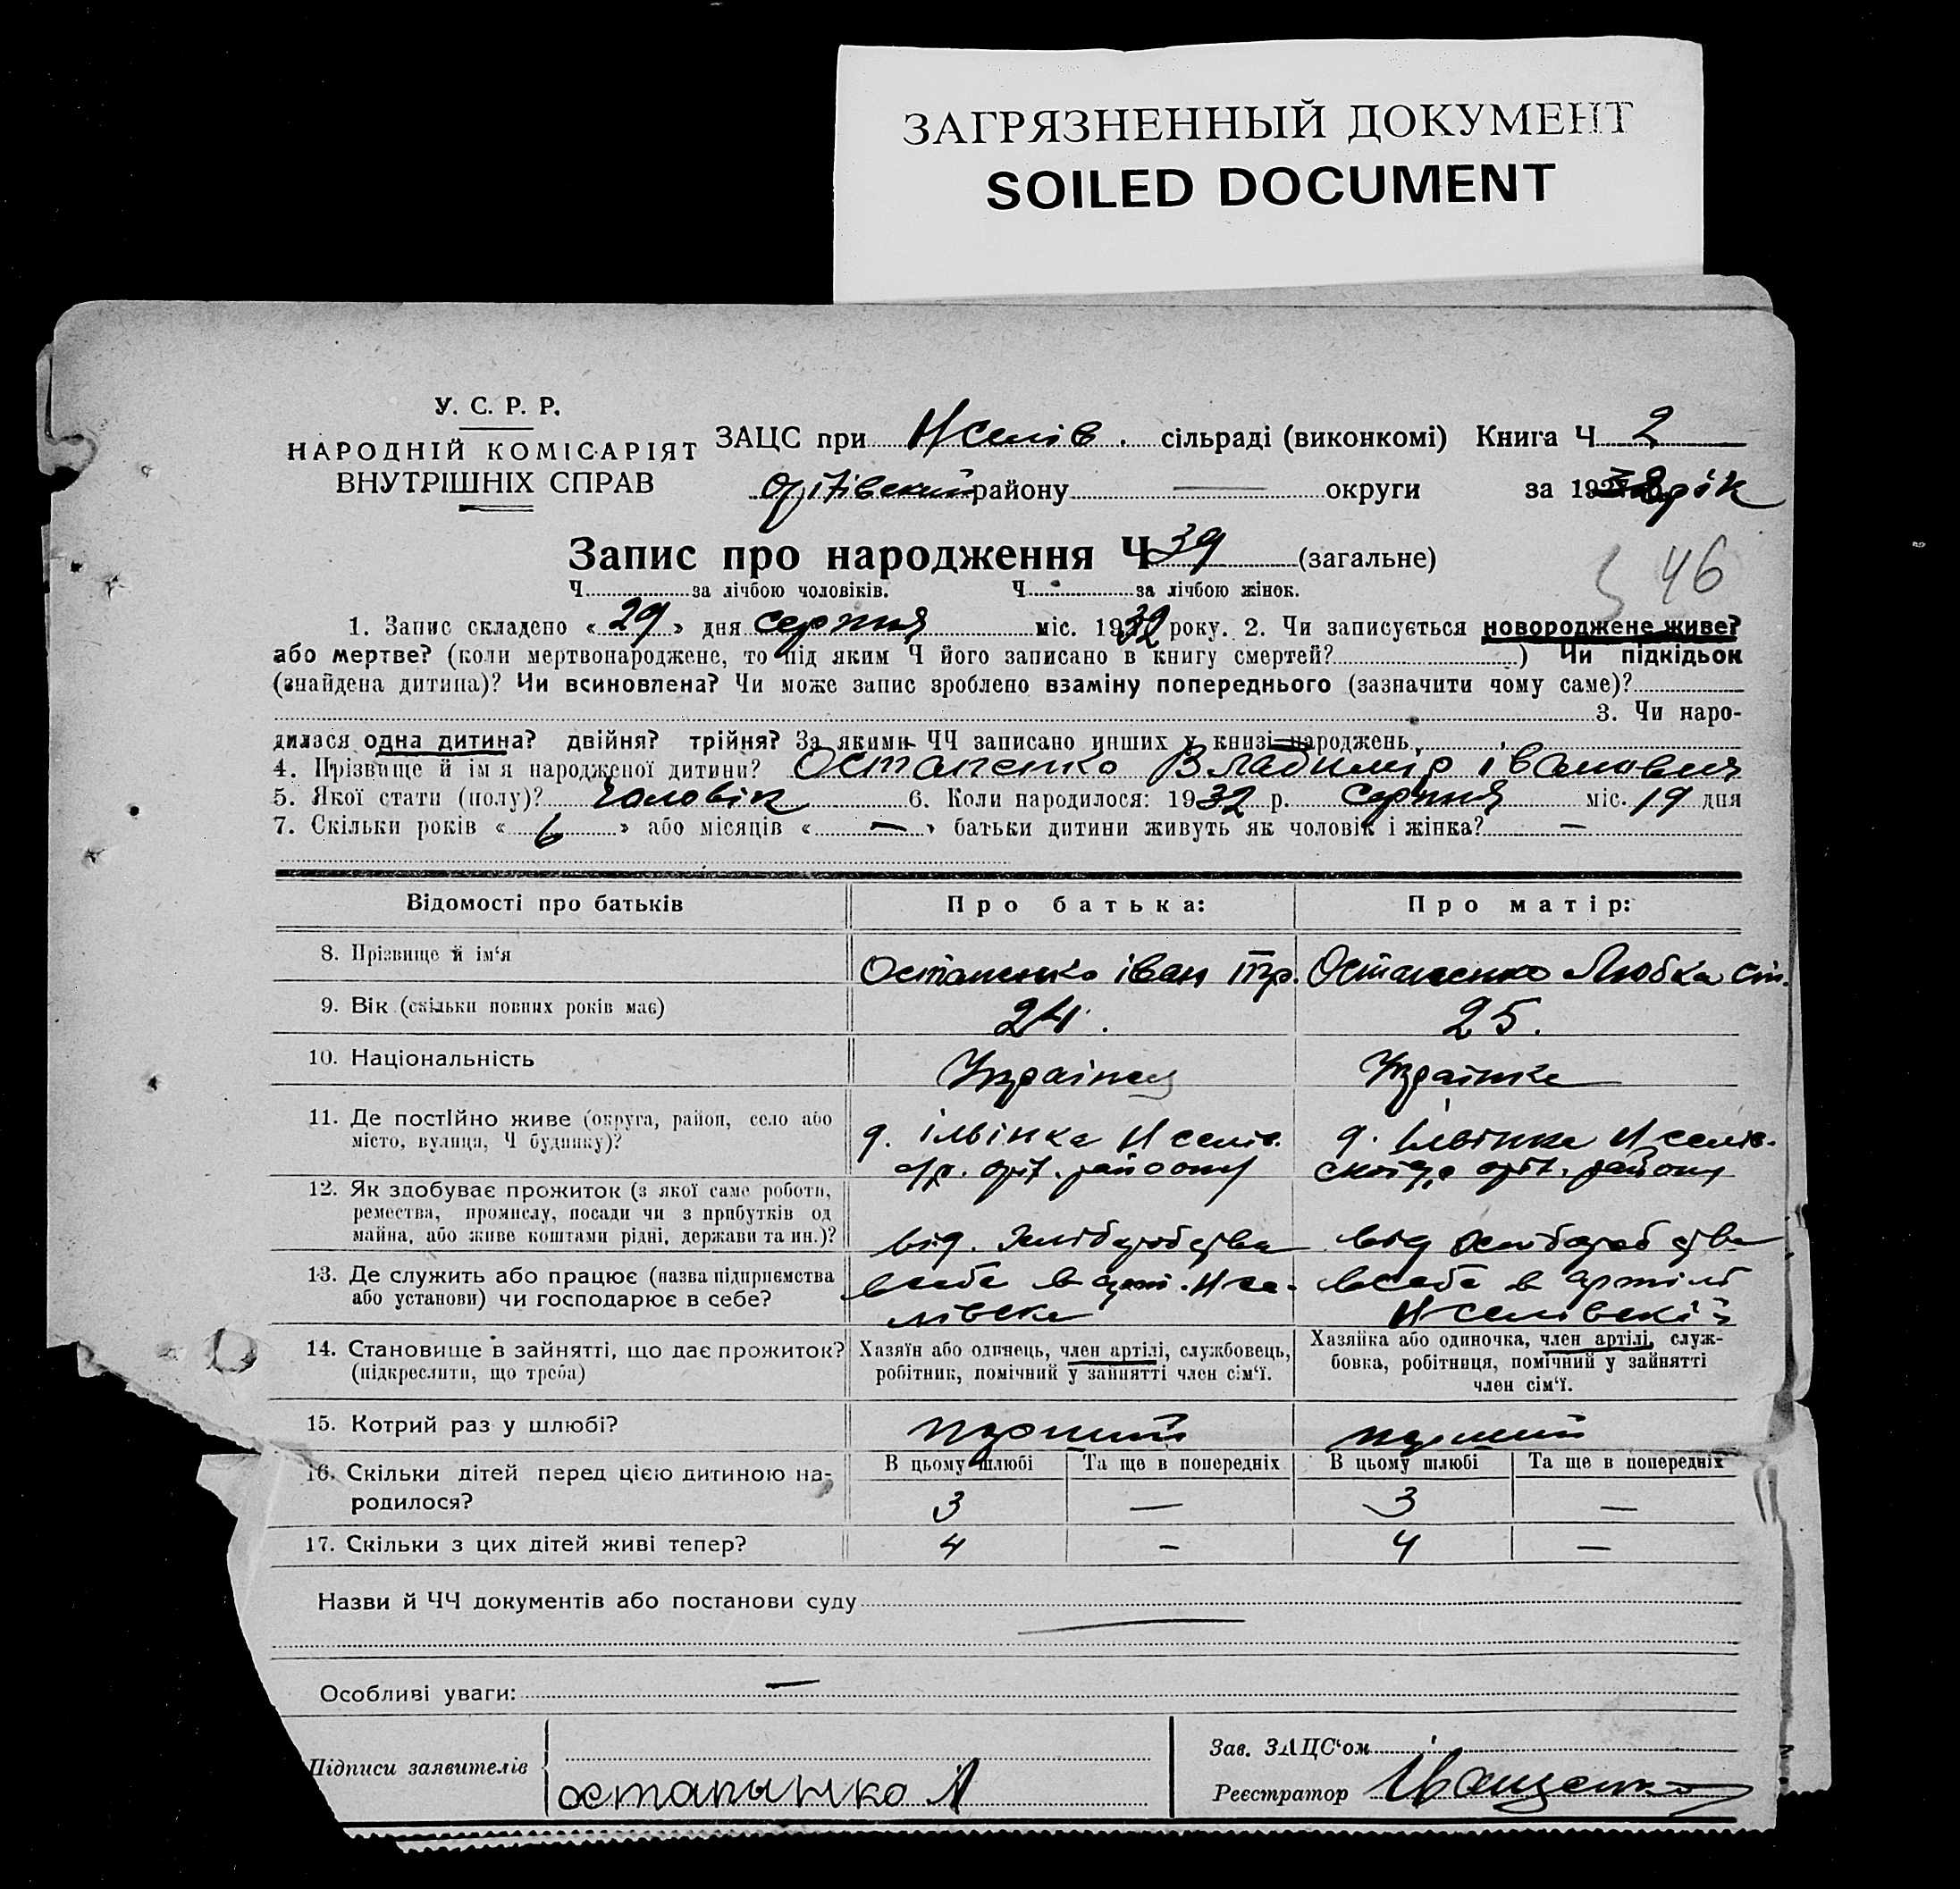 ЗАГРЯЗНЕННЫЙ ДОКУМЕНТ
SOILED DOCUMENT
У. С. Р. Р.
НАРОДНІЙ КОМІСАРІЯТ
ВНУТРІШНІХ СПРАВ
ЗАЦС при Нселів. сільраді (виконкомі) Книга Ч 2
району — округи за 19 рік
Запис про народження Ч 39 (загальне)
Ч за лічбою чоловіків. Ч за лічбою жінок.
46
1. Запис складено « 29 » дня серпня міс. 1932 року. 2. Чи записується новороджене живе?
або мертве? (коли мертвонароджене, то під яким Ч його записано в книгу смертей? ) Чи підкідьок
(знайдена дитина)? Чи всиновлена? Чи може запис зроблено взаміну попереднього (зазначити чому саме)?
3. Чи наро-
дилася одна дитина? двійня? трійня? За якими ЧЧ записано инших у книзі народжень
4. Прізвище й ім я народженої дитини? Остапенко Владимір Іванович
5. Якої стати (полу)? чоловік 6. Коли народилося: 1932 р. серпня міс. 19 дня
7. Скільки років « 6 » або місяців « — » батьки дитини живуть як чоловік і жінка? —
Відомості про батьків Про батька: Про матір:
8. Прізвище й ім‘я Остапенко Іван Остапенко Любка
9. Вік (скільки повних років має) 24. 25.
10. Національність Українец Українка
11. Де постійно живе (округа, район, село або
місто, вулиця, Ч будинку)?
12. Як здобуває прожиток (з якої саме роботи,
ремества, промислу, посади чи з прибутків од
майна, або живе коштами рідні, держави та ин.)?
13. Де служить або працює (назва підприємства
або установи) чи господарює в себе?
14. Становище в зайнятті, що дає прожиток?
(підкреслити, що треба)
Хазяїн або одинець, член артілі, службовець,
робітник, помічний у зайнятті член сім‘ї.
Хазяйка або одиночка, член артілі, служ-
бовка, робітниця, помічний у зайнятті
член сім‘ї.
15. Котрий раз у шлюбі? перший перший
16. Скільки дітей перед цією дитиною на-
родилося?
В цьому шлюбі Та ще в попередніх В цьому шлюбі Та ще в попередніх
3 — 3 —
17. Скільки з цих дітей живі тепер? 4 — 4 —
Назви й ЧЧ документів або постанови суду
Особливі уваги: —
Підписи заявителів
остапынко
Зав. ЗАЦС‘ом
Реєстратор Іващенко